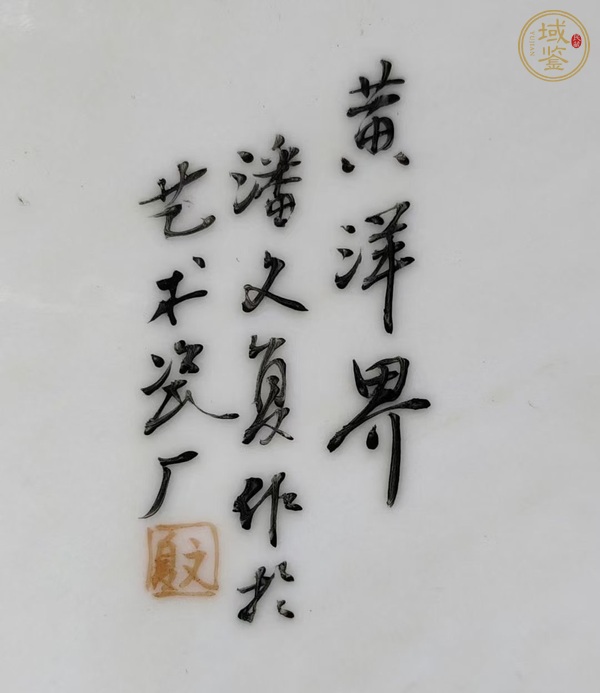 黄洋界
潘文复作於
艺术瓷厂
文复
域鉴